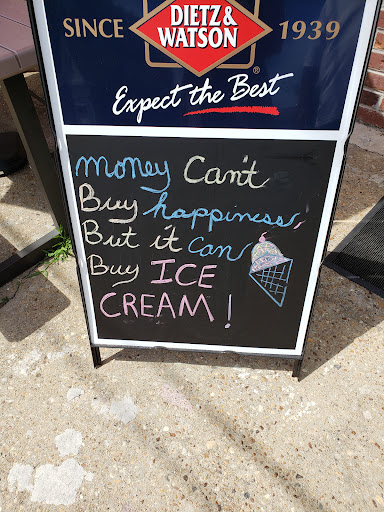 DIETZ &
WATSON
SINCE 1939
Expect the Best®
money Can't
Buy happiness,
But it Can
Buy ICE
CREAM!